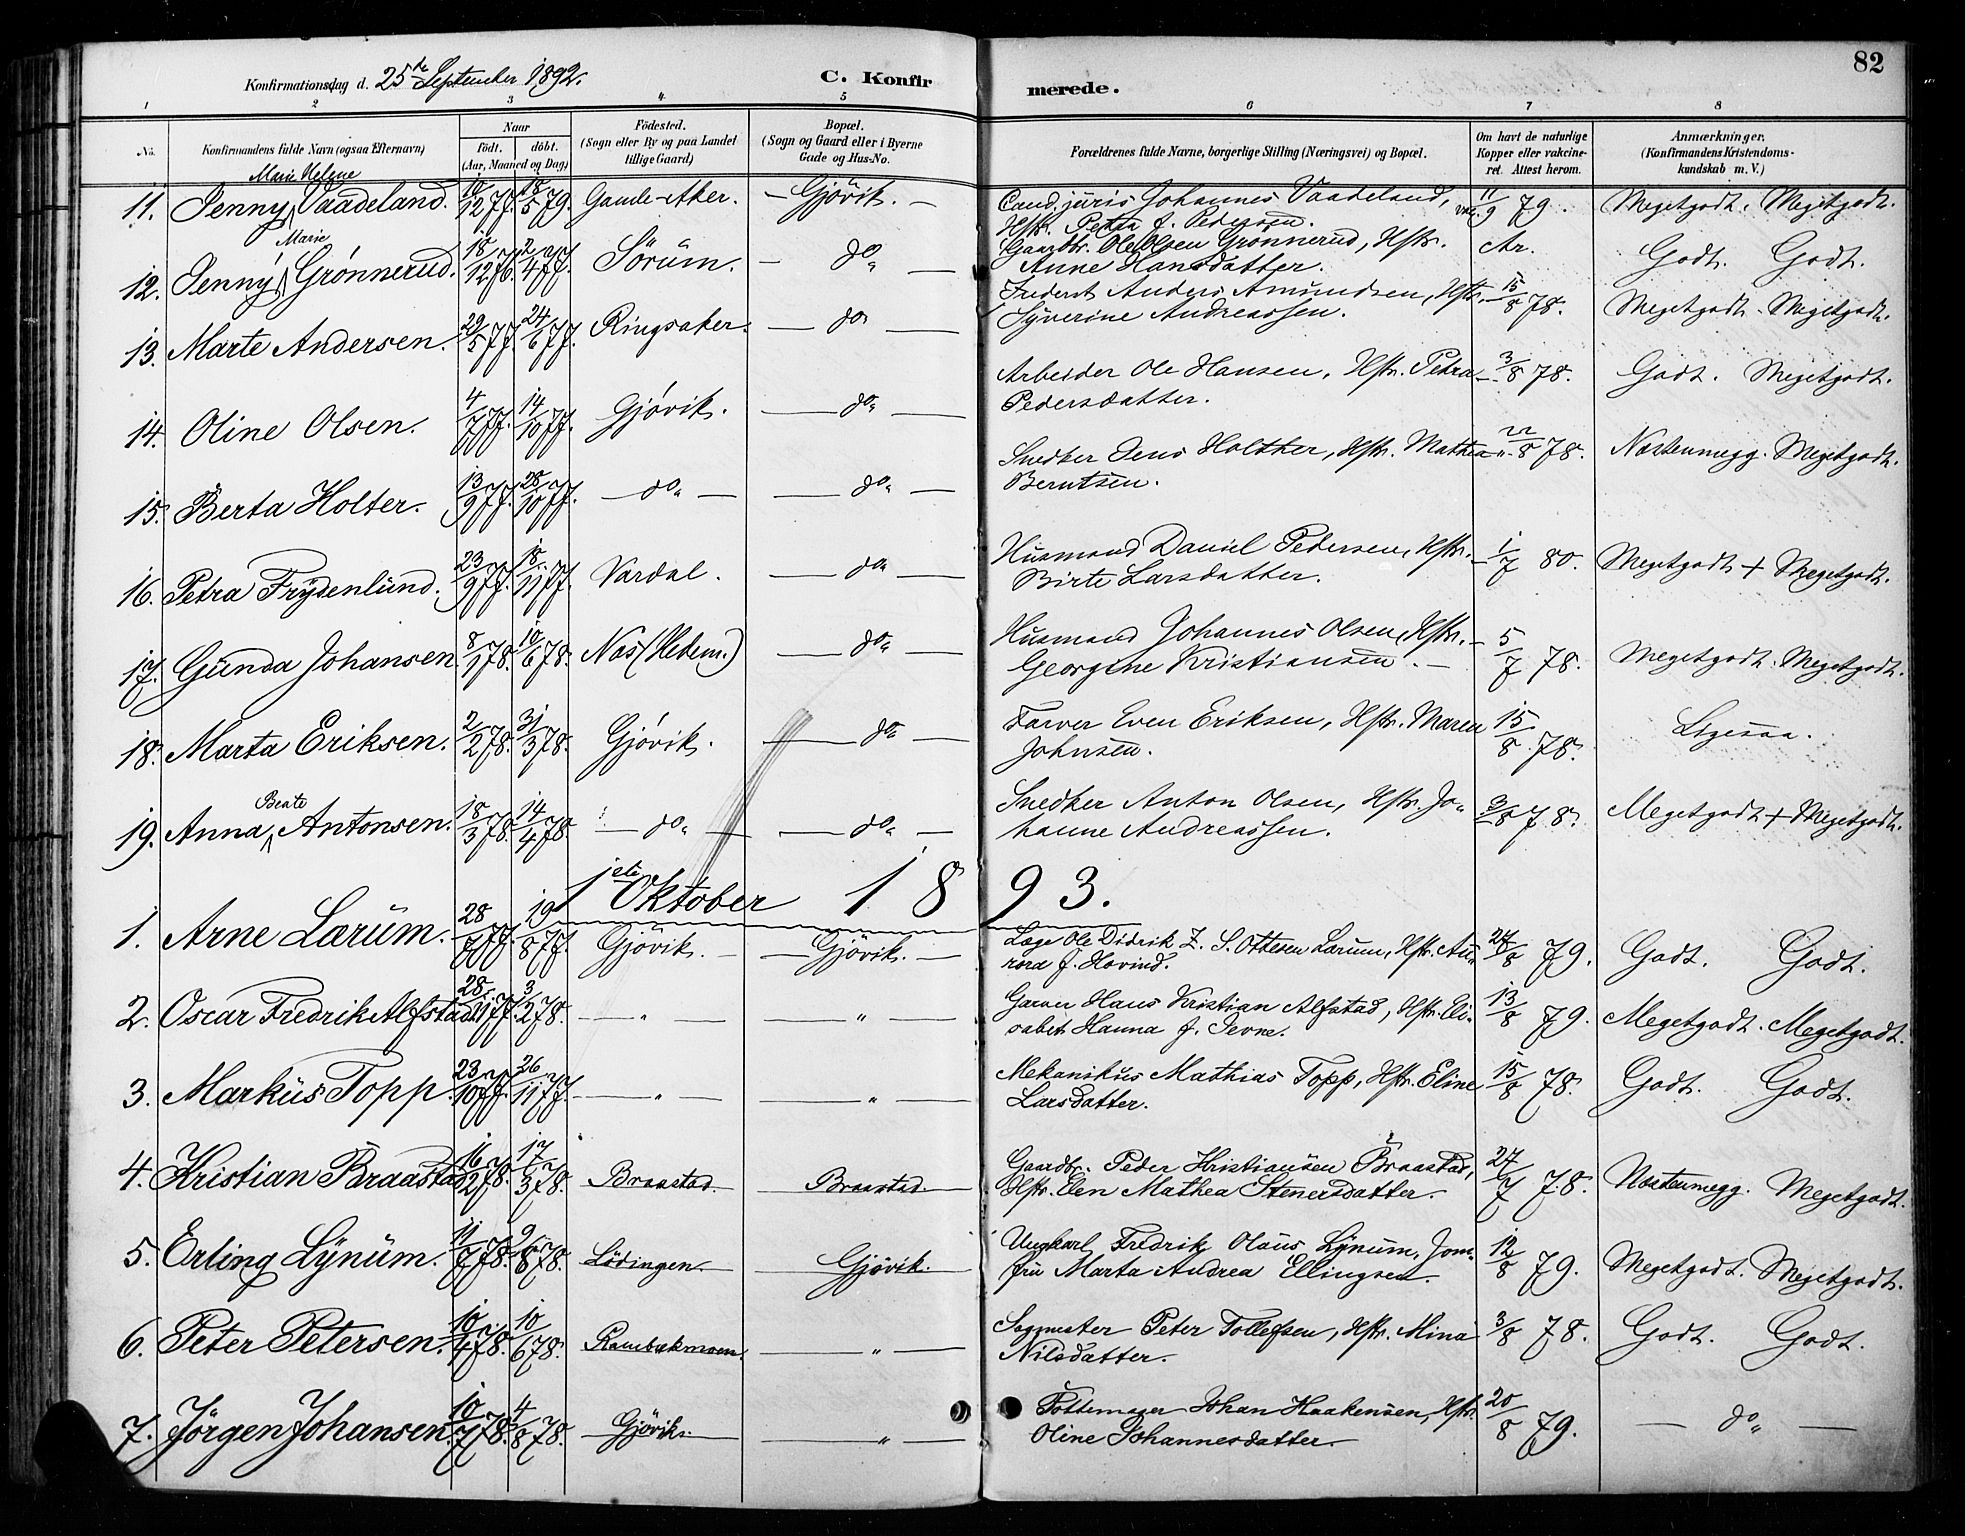 82
Konfirmationsdag d. 25de September 1892. C. Konfirmerede.
1 2 3 4 5 6 7 8
No. Konfirmandens fulde Navn (ogsaa Efternavn) Naar födt. döbt. (Aar, Maaned og Dag) Födested. (Sogn eller By og paa Landet tillige Gaard) Bopæl. (Sogn og Gaard eller i Byerne Gade og Hus-No. Forældrenes fulde Navne, borgerlige Stilling (Næringsvei) og Bopæl. Om havt de naturlige Kopper eller vakcineret. Attest herom. Anmærkninger. (Konfirmandens Kristendomskundskab m. V.)
Marie Helene
11. Jenny Vaadeland. 10/12 77. 18/5 79. Gamle-Aker. — Gjövik. — Cand. juris Johannes Vaadeland, vac. 11/9 79. Megetgodt. Megetgodt.
Hstr. Petra f. Pedersen.
Marie
12. Jenny Grønnerud. 18/12 76. 2/4 77. Sörum. — do — Gaardbr. Ole Olsen Grönnerud, Hstr. Ar. Godt. Godt.
Anne Hansdatter.
13. Marte Andersen. 29/5 77. 24/6 77. Ringsaker. — do — Inderst Anders Amundsen, Hstr. — 15/8 78. Megetgodt. Megetgodt.
Syverine Andreassen.
14. Oline Olsen. 4/7 77. 14/10 77. Gjøvik. — do — Arbeider Ole Hansen, Hstr. Petra — 3/8 78. Godt. Megetgodt.
Pedersdatter.
15. Berta Holter. 13/9 77. 28/10 77. — do — — do — Snedker Jens Holther, Hstr. Mathea 22/8 78. Næstenmegg. Megetgodt.
Berntsen.
16. Petra Frydenlund. 23/9 77. 18/11 77. Vardal. — do — Husmand Daniel Pedersen, Hstr. — 1/7 80. Megetgodt + Megetgodt.
Birte Larsdatter.
17. Gunda Johansen. 8/1 78. 10/6 78. Næs (Hedem.) — do — Husmand Johannes Olsen, Hstr. — 5/7 78. Megetgodt. Megetgodt.
Georgine Kristiansen. —
18. Marta Eriksen. 2/2 78. 31/3 78. Gjövik. — do — Farver Even Eriksen, Hstr. Maren 15/8 78. Ligesaa.
Johnsen.
Beate
19. Anna Antonsen. 18/3 78. 14/4 78. — do — — do — Snedker Anton Olsen, Hstr. Jo- 3/8 78. Megetgodt + Megetgodt.
hanne Andreassen.
1ste Oktober 1893.
1. Arne Lærum. 28/7 77. 19/8 77. Gjövik. — Gjövik. — Læge Ole Didrik Z. S. Ottesen Lærum, Hstr. Au- 24/8 79. Godt. Godt.
rora f. Hovind.
2. Oscar Fredrik Alfstad. 28/11 77. 3/2 78. — " — — " — Garver Hans Kristian Alfstad, Hstr. Eli- 13/8 79. Megetgodt. Megetgodt.
sabet Hanna f. Jevne.
3. Markus Topp. 23/10 77. 26/11 77. — " — — " — Mekanikus Mathias Topp, Hstr. Eline 15/8 78. Godt. Godt.
Larsdatter.
4. Kristian Braastad 16/2 78. 17/3 78. Braastad. — Braastad. — Gaardbr. Peder Kristiansen Braastad, 27/7 78. Næstenmegg. Megetgodt.
Hstr. Elen Mathea Stenersdatter.
5. Erling Lynum. 11/7 78. 2/8 78. Lödingen. — Gjövik. Ungkarl Fredrik Olaus Lynum, Jom- 12/8 79. Megetgodt. Megetgodt.
fru Marta Andrea Ellingsen.
6. Peter Petersen. 10/4 78. 10/6 78. Rambækmoen. — " — Sagmester Peter Tollefsen, Hstr. Mina 3/8 78. Godt. Godt.
Nilsdatter.
7. Jörgen Johansen. 10/7 78. 4/8 78. Gjövik. — " — Pottemager Johan Haakensen, Hstr. 20/8 79. — do —
Oline Johannesdatter.